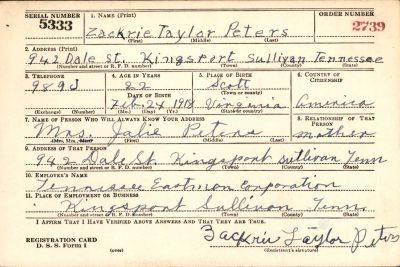 SERIAL NUMBER 1. NAME (Print) ORDER NUMBER
5333 Zackrie Taylor Peters 2739
(First) (Middle) (Last)
2. ADDRESS (Print)
942 Dale St. Kingsport Sullivan Tennessee
(Number and street or R. F. D. number) (Town) (County) (State)
3. TELEPHONE 4. AGE IN YEARS 5. PLACE OF BIRTH 6. COUNTRY OF CITIZENSHIP
22 Scott
(Town or county)
DATE OF BIRTH
Feb. 24 1918 Virginia America
(Exchange) (Number) (Mo.) (Day) (Yr.) (State or country)
7. NAME OF PERSON WHO WILL ALWAYS KNOW YOUR ADDRESS 8. RELATIONSHIP OF THAT PERSON
Mrs. Peters mother
(Mr., Mrs., Miss) (First) (Middle) (Last)
9. ADDRESS OF THAT PERSON
942 Dale St. Kingsport Sullivan Tenn
(Number and street or R. F. D. number) (Town) (County) (State)
10. EMPLOYER'S NAME
Tennessee Eastman Corporation
11. PLACE OF EMPLOYMENT OR BUSINESS
Kingsport Sullivan Tenn
(Number and street or R. F. D. number) (Town) (County) (State)
I AFFIRM THAT I HAVE VERIFIED ABOVE ANSWERS AND THAT THEY ARE TRUE.
REGISTRATION CARD
D. S. S. Form 1 (over) Zackrie Taylor Peters
(Registrant's signature)